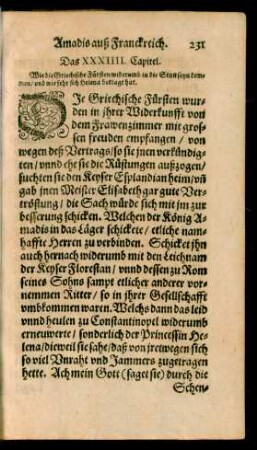 Amadis auß Franckreich. 231
Das XXXIIII. Capitel.
Wie die Griechische Fürsten widerumb in die Statt seyn kom-
men / und wie sehr sich Helena beklagt hat.
DJe Griechische Fürsten wur-
den in jhrer Widerkunfft von
dem Frawenzimmer mit gros-
sen freuden empfangen / von
wegen deß Vertrags / so sie jnen verkündig-
ten / vnnd ehe sie die Rüstungen außzogen /
suchten sie den Keyser Esplandian heim / vñ
gab jnen Meister Elisabeth gar gute Ver-
tröstung / die Sach würde sich mit jm zur
besserung schicken. Welchen der König A-
madis in das Läger schickete / etliche nam-
haffte Herren zu verbinden. Schicket jhn
auch hernach widerumb mit den Leichnam
der Keyser Florestan / vnnd dessen zu Rom
seines Sohns sampt etlicher anderer vor-
nemmen Ritter / so in jhrer Gesellschafft
vmbkommen waren. Welchs dann das leid
vnnd heulen zu Constantinopel widerumb
erneuwerte / sonderlich der Princessin He-
lena / dieweil sie sahe / daß von jretwegen sich
so viel Vnraht vnd Jammers zugetragen
hette. Ach mein Gott (saget sie) durch die
Schen-